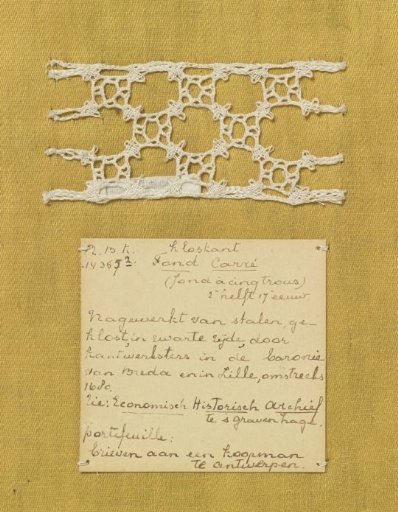 R.B.K. Kloskant
1436 5² Fond Carré
(fond à cinq trous)
2e helft 17e eeuw
Nagewerkt van stalen, ge-
klost, in zwarte zijde, door
kantwerksters in de baronie
van Breda en in Lille, omstreeks
1680.
Zie: Economisch Historisch Archief
te s'gravenhage.
portefeuille:
brieven aan een koopman
te antwerpen.